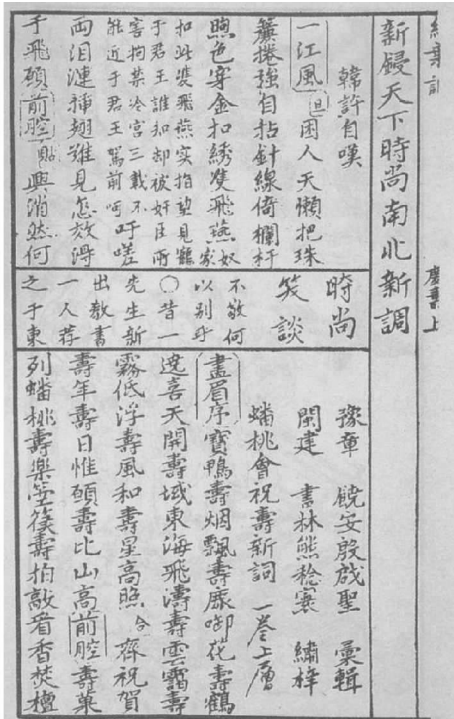 新鋟天下時尚南北新調
韓許自嘆
一江風 旦 困人天懶把珠
簾捲強自拈針線倚欄杆
煦色穿金扣綉雙飛燕 奴家
扣此雙飛燕实指望見寵
于君王誰知却被奸臣所
害拘禁冷宮三載不
能近于君王駕前呵 吁嗟
両泪漣揷翅雖見怎放得
于飛碩 前腔 貼 興消然何
時尚
笑談
不敬何
以别乎
〇昔一
先生新
出教書
一人荐
之于東
豫章 饒安殷啟聖 彙輯
閩建 書林熊稔寰 繡梓
蟠桃會祝壽新詞 一卷上層
畫眉序 寶鴨壽烟飄壽鹿啣花壽鶴
遶喜天開壽域東海飛濤壽雲靄壽
霧低浮壽風和壽星高照 合 齊祝賀
壽年壽日惟碩壽比山高 前腔 壽菓
列蟠桃壽樂笙簧壽拍敲看香焚檀